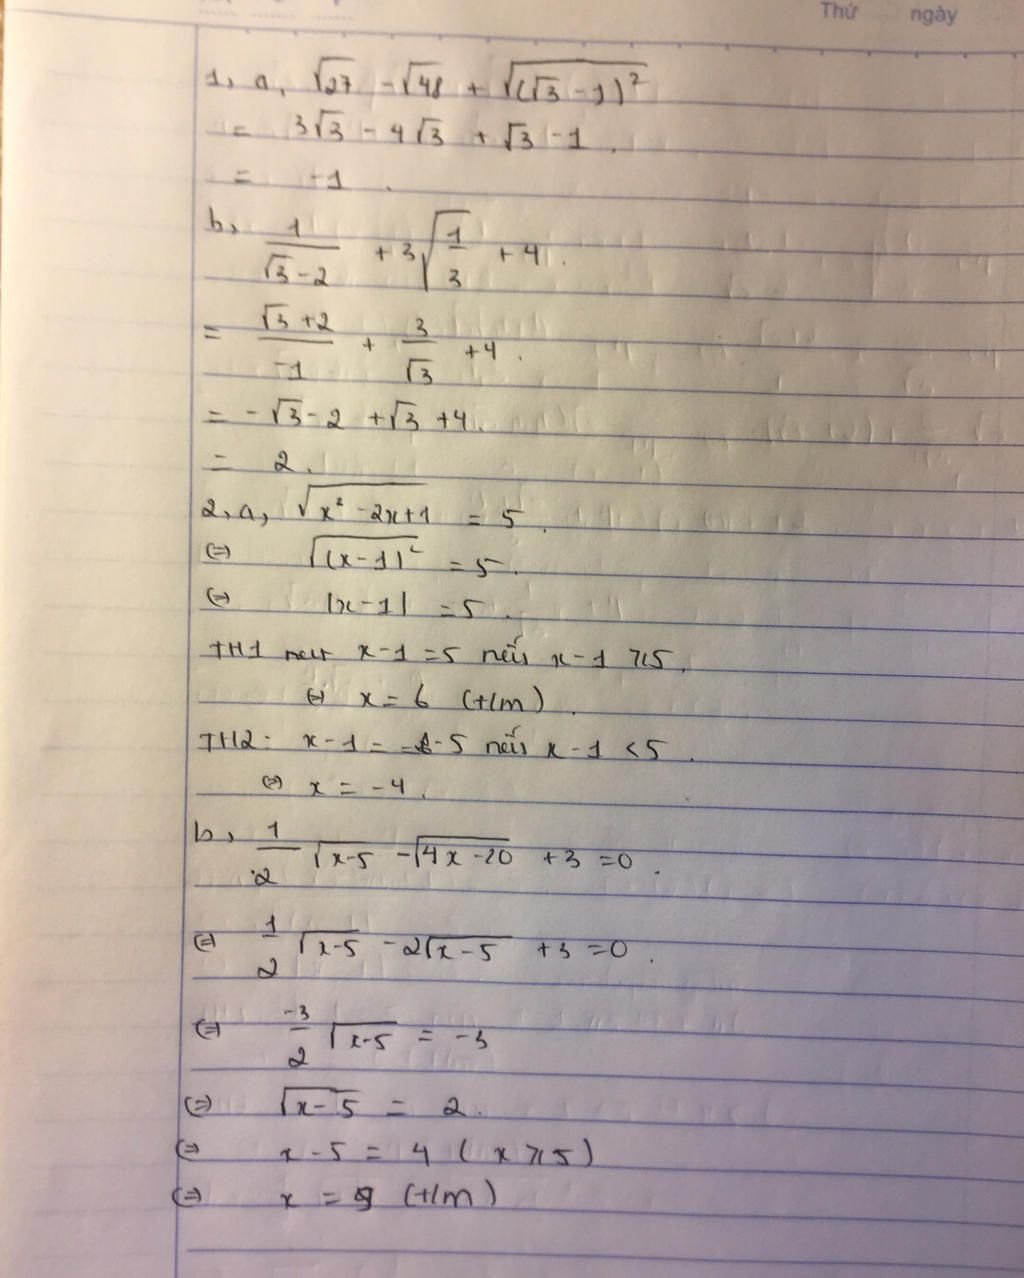 Thứ ngày
1, a, √27 - √48 + √((√3 - 1)²)
= 3√3 - 4√3 + √3 - 1.
= -1.
b, 1/(√3 - 2) + 3√(1/3) + 4.
= (√3 + 2)/-1 + 3/√3 + 4.
= -√3 - 2 + √3 + 4.
= 2.
2, a, √(x² - 2x + 1) = 5.
(=) √((x - 1)²) = 5.
(=) |x - 1| = 5.
TH1 x - 1 = 5 nếu x - 1 ⩾ 5.
(=) x = 6 (t/m).
TH2: x - 1 = -5 nếu x - 1 < 5.
(=) x = -4.
b, 1/2 √(x-5) - √(4x - 20) + 3 = 0.
(=) 1/2 √(x-5) - 2√(x-5) + 3 = 0.
(=) -3/2 √(x-5) = -3
(=) √(x-5) = 2.
(=) x - 5 = 4 (x ⩾ 5)
(=) x = 9 (t/m)